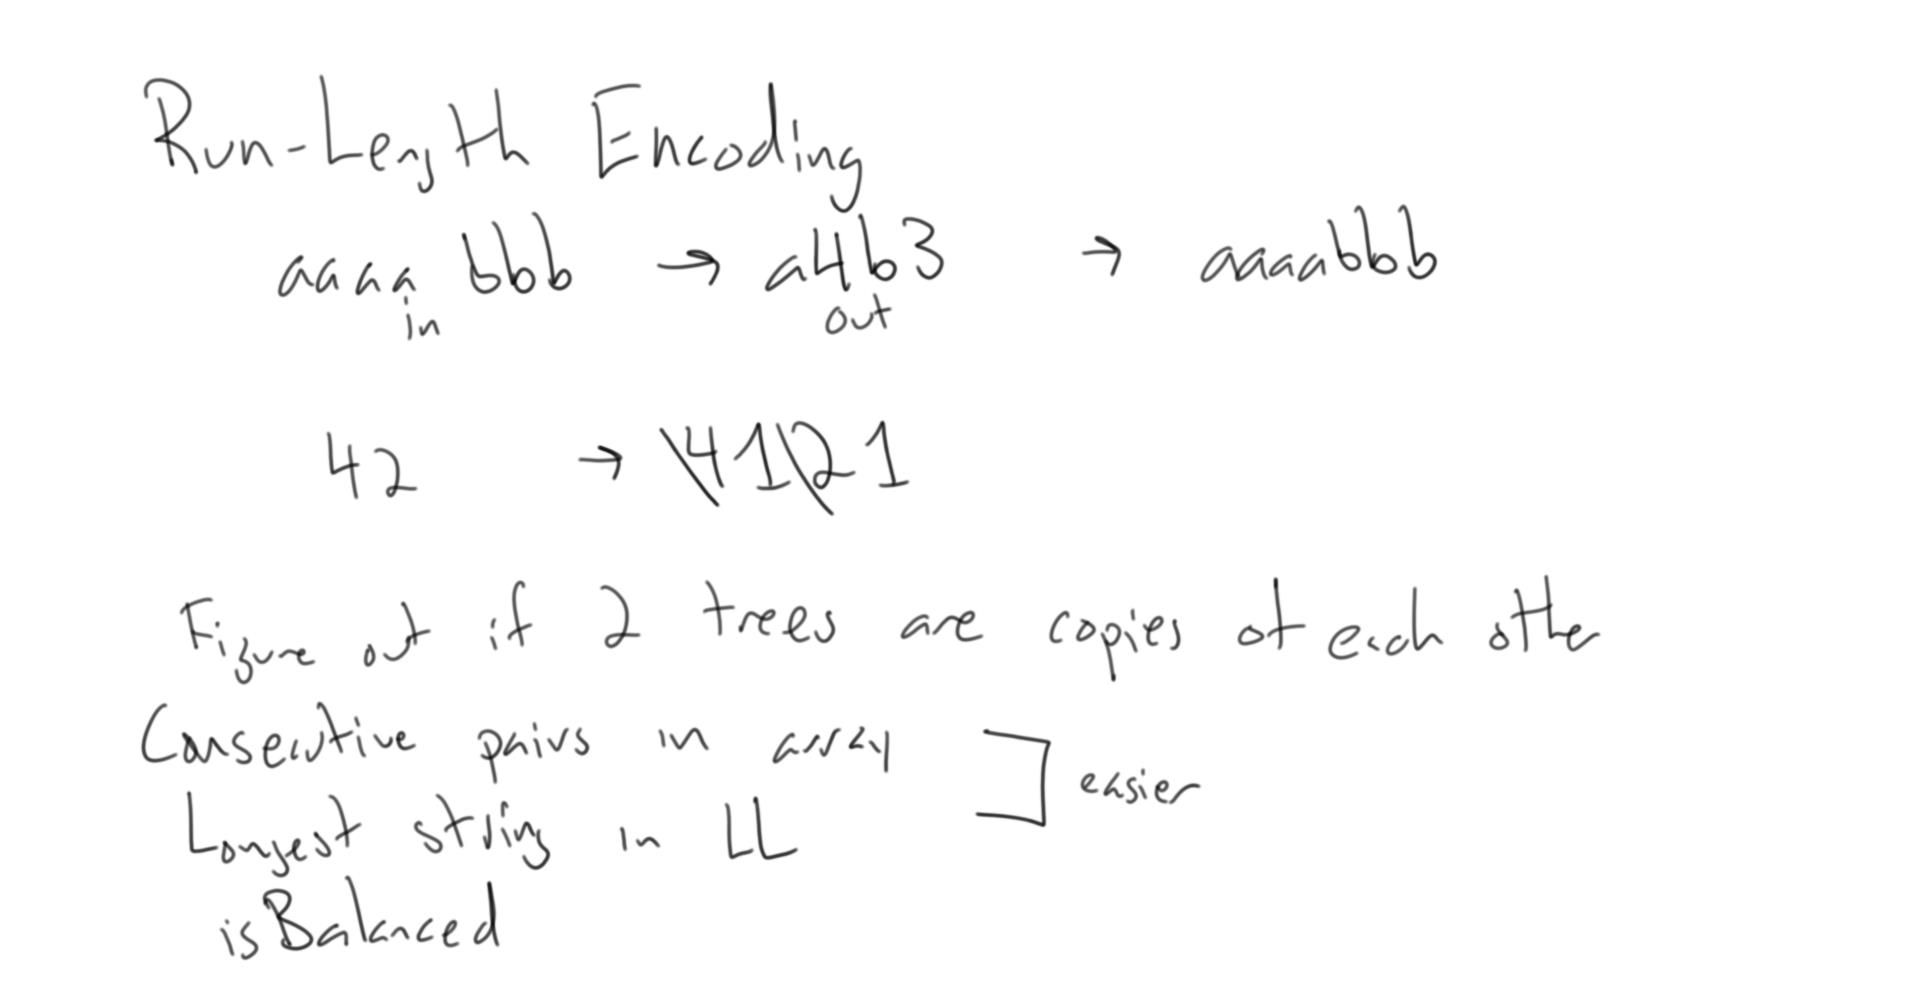 Run-Length Encoding
aaaabbb → a4b3 → aaaabbb
in out
42 → \41\21
Figure out if 2 trees are copies of each othe
Consecutive pairs in array
easier
Longest string in LL
isBalanced